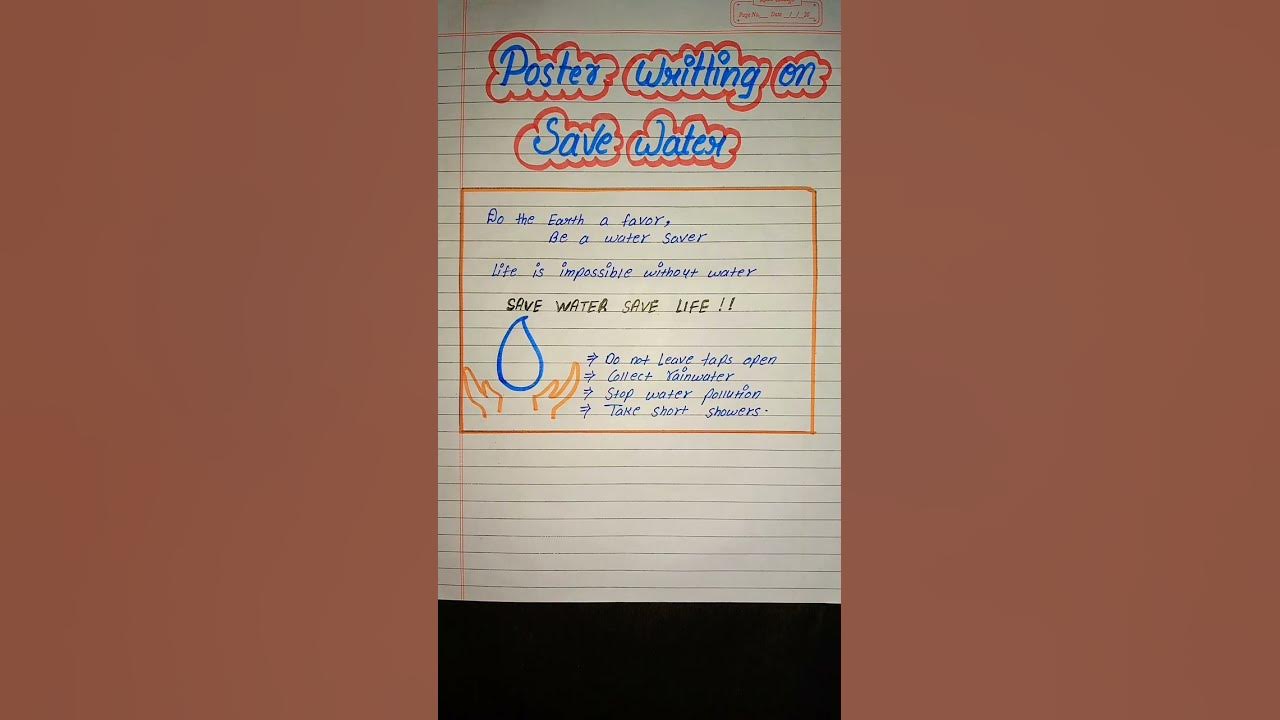 Page No. Date / / 20
Poster Writting on
Save Water
Do the Earth a favor,
Be a water saver
Life is impossible without water
SAVE WATER SAVE LIFE !!
⇒ Do not leave taps open
⇒ Collect rainwater
⇒ Stop water pollution
⇒ Take short showers.